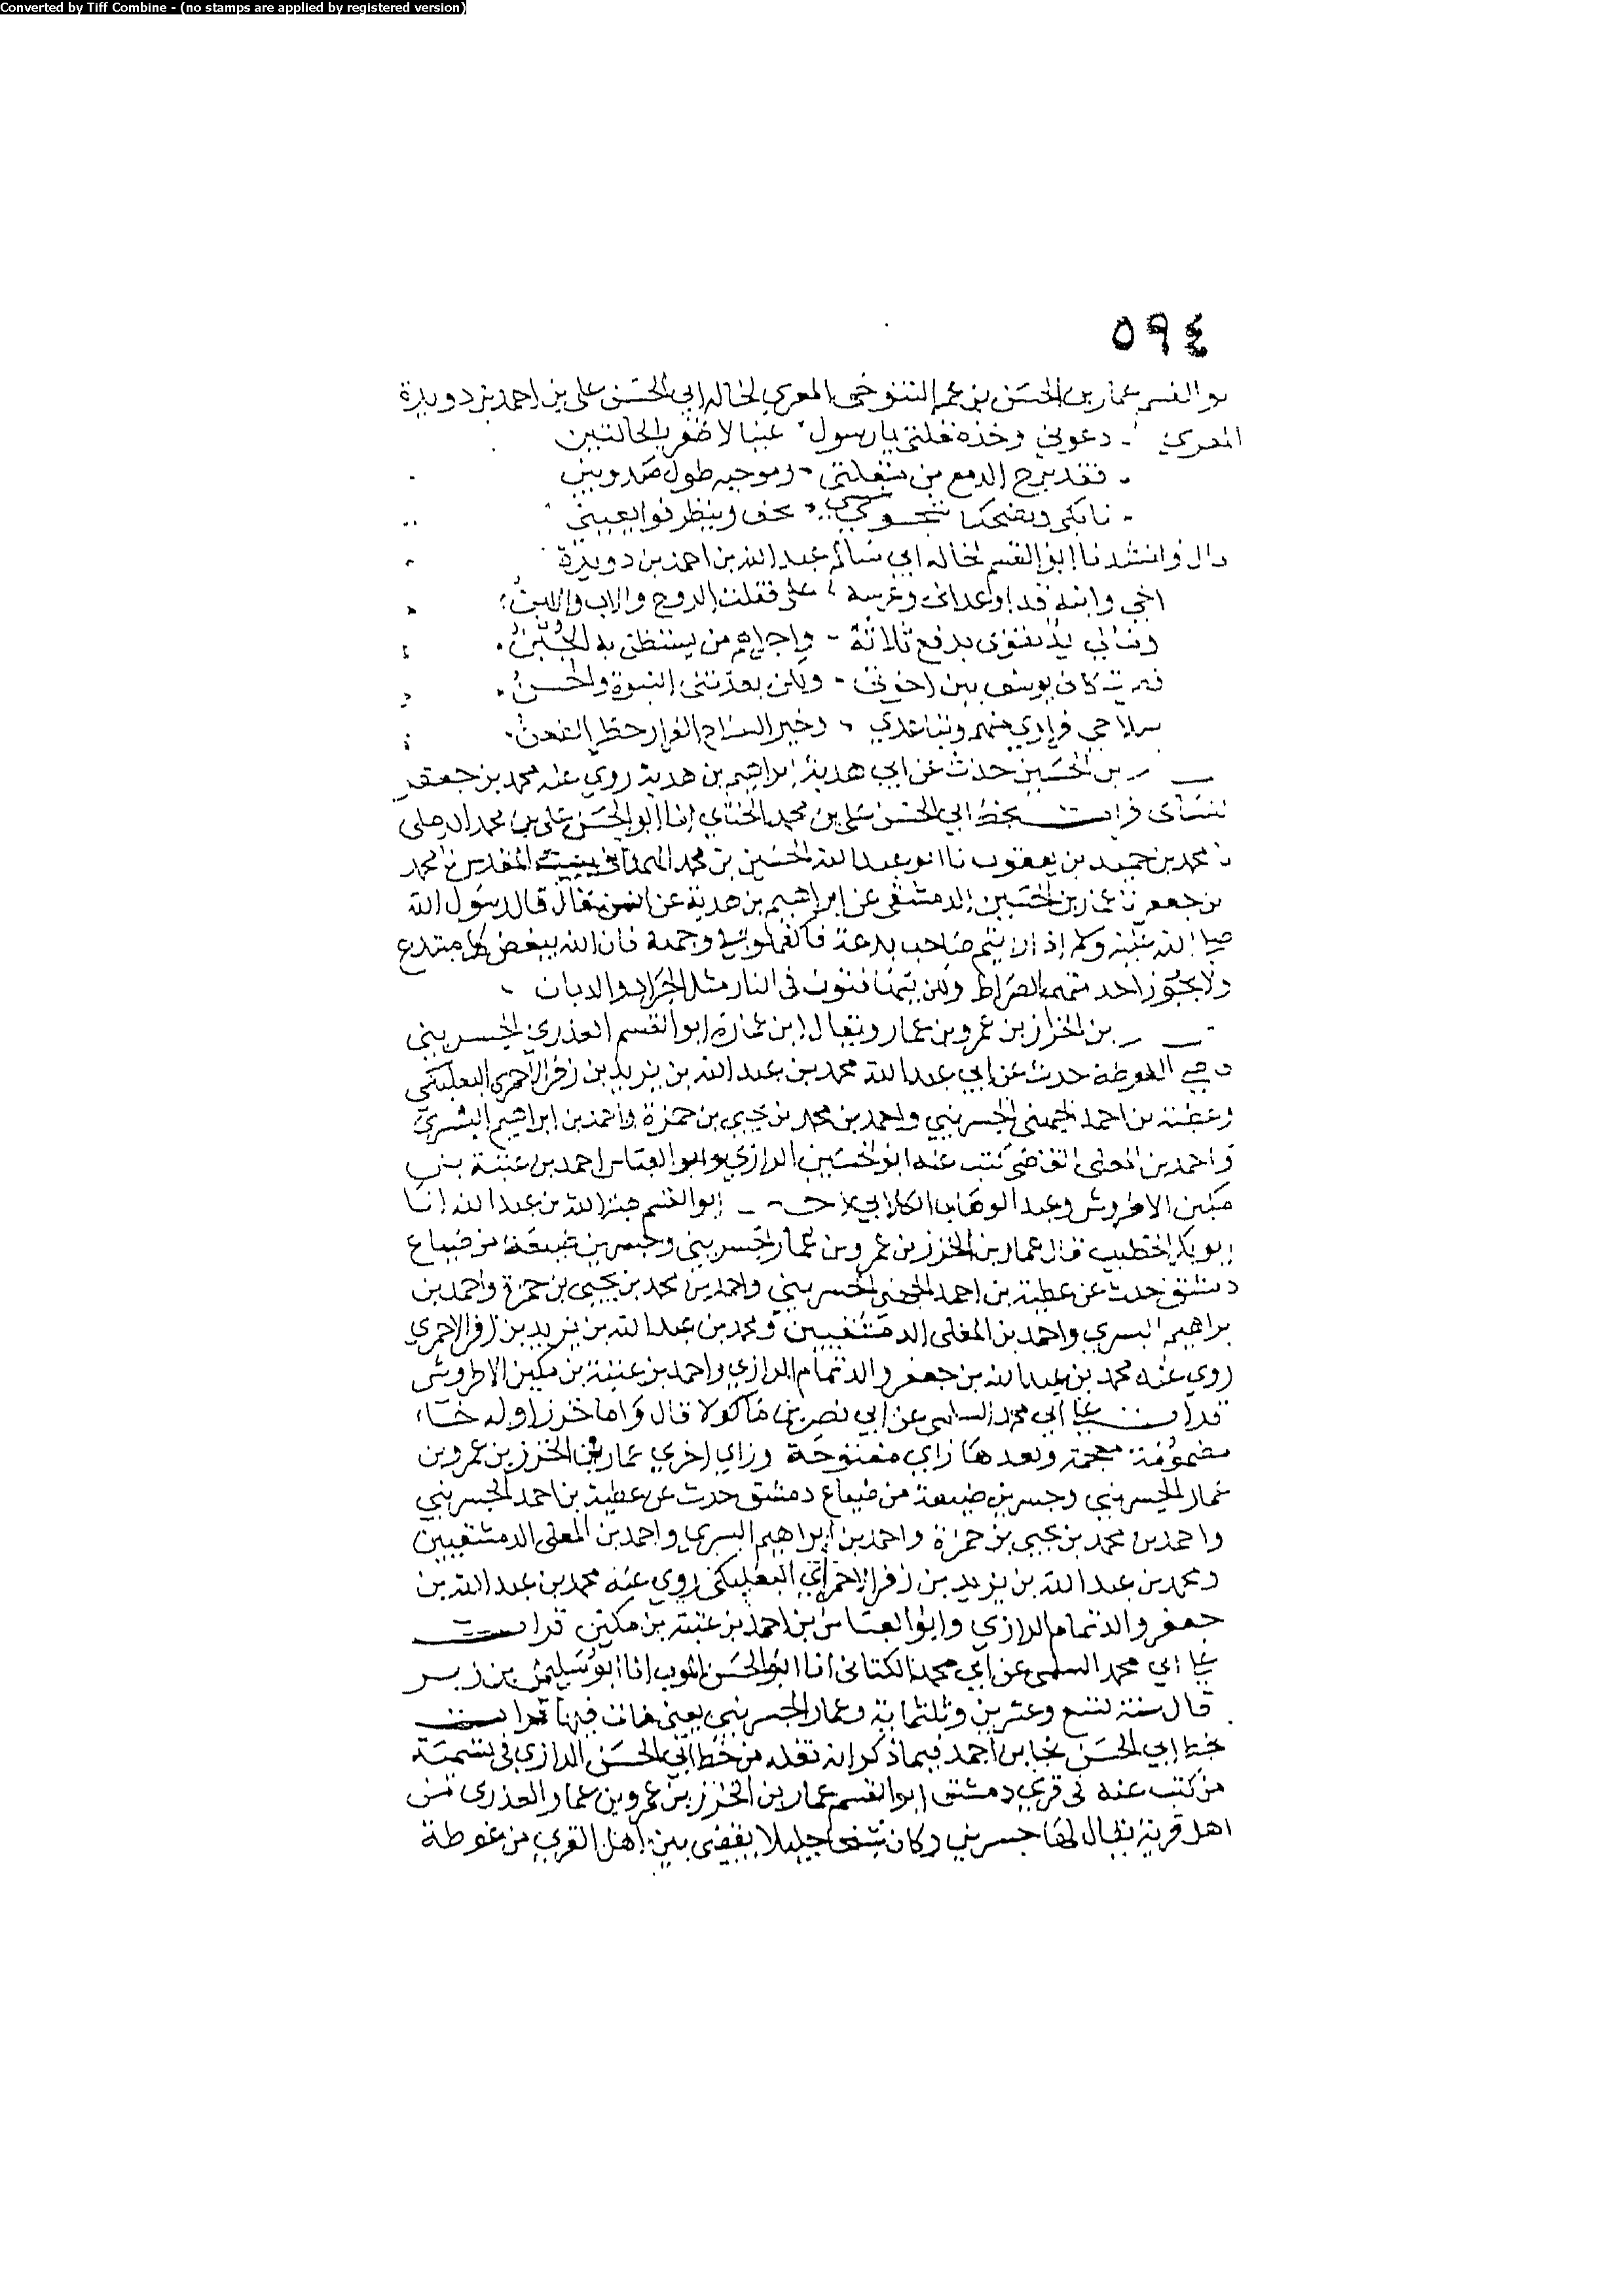 Converted by Tiff Combine - (no stamps are applied by registered version)
٥٩٤
بو القسم عمار بن الحسن بن عمر التنوخي المعري لخاله ابي الحسن علي بن احمد بن دويدة
المعري دعوني وخذه مقلتي يا رسول
فقد برح الدمع من مقلتي وموجبه طول صد وبين
ويضحك
قال وانشدنا ابو القسم لخاله ابي سالم عبد الله بن احمد بن دويدة
اخي وابنه قد اوعداني وعرسه علي فقلت الروح والاب والابن
ثلاثة واجراهم من يستظن به الجبن
كان يوسف بين اخوتي ولكن بعدتني النبوة والحسن
سلاحي فراري منهم وتباعدي وخير السلاح الفرار
بن الحسين حدث عن ابي هدبة ابراهيم بن هدبة روي عنه محمد بن جعفر
قرات بخط ابي الحسن علي بن محمد الحنائي انا ابو الحسن علي بن محمد
محمد بن حميد بن يعقوب نا ابو عبد الله الحسين بن محمد ببيت المقدس نا محمد
بن جعفر نا عمار بن الحسين الدمشقي عن ابراهيم بن هدبة عن انس قال قال رسول الله
صلى الله عليه وسلم اذا رايتم صاحب بدعة فاكفهروا في وجهه فان الله يبغض كل مبتدع
ولا يجوز احد منهم الصراط ولكن يتهافتون في النار مثل الجراد والذبان
بن الخزز بن عمرو بن عمار ويقال ابن عمارة ابو القسم العذري الجسريني
الغوطة حدث عن ابي عبد الله محمد بن عبد الله بن يزيد بن زفر الاحمري البعلبكي
وعطية بن احمد الجهني الجسريني واحمد بن محمد بن يحيى بن حمزة واحمد بن ابراهيم البسري
واحمد بن المعلى القاضي كتب عنه ابو الحسين الرازي وابو العباس احمد بن عتبة بن
مكين الاطروش وعبد الوهاب الكلابي ابو القسم هبة الله بن عبد الله انا
ابو بكر الخطيب قال عمار بن الخزز بن عمرو بن عمار الجسريني وجسرين ضيعة من ضياع
دمشق حدث عن عطية بن احمد الجهني الجسريني واحمد بن محمد بن يحيى بن حمزة واحمد بن
براهيم البسري واحمد بن المعلى الدمشقيين ومحمد بن عبد الله بن يزيد بن زفر الاحمري
روي عنه محمد بن عبد الله بن جعفر والد تمام الرازي واحمد بن عتبة بن مكين الاطروش
قرات على ابي محمد السلمى عن ابي نصر بن ماكولا قال واما خزز اوله خاء
مضمومة معجمة وبعدها زاي مفتوحة وزاي اخري عمار بن الخزز بن عمرو بن
عمار الجسريني وجسرين ضيعة من ضياع دمشق حدث عن عطية بن احمد الجسريني
واحمد بن محمد بن يحيى بن حمزة واحمد بن ابراهيم البسري واحمد بن المعلى الدمشقيين
ومحمد بن عبد الله بن يزيد بن زفر الاحمري البعلبكي روي عنه محمد بن عبد الله بن
جعفر والد تمام الرازي وابو العباس بن احمد بن عتبة بن مكين قرات
على ابي محمد السلمى عن ابي محمد الكتاني انا ابو الحسن انا ابو سليمن بن زبر
قال سنة تسع وعشرين وثلثماية وعمار الجسريني يعني مات فيها قرات
بخط ابي الحسن نجا بن احمد فيما ذكر انه نقله من خط ابي الحسن الرازي في تسمية
من كتب عنه في قري دمشق ابو القسم عمار بن الخزز بن عمرو بن عمار العذرى من
اهل قرية يقال لها جسرين وكان شيخا جليلا يقضي بين اهل القري من غوطة